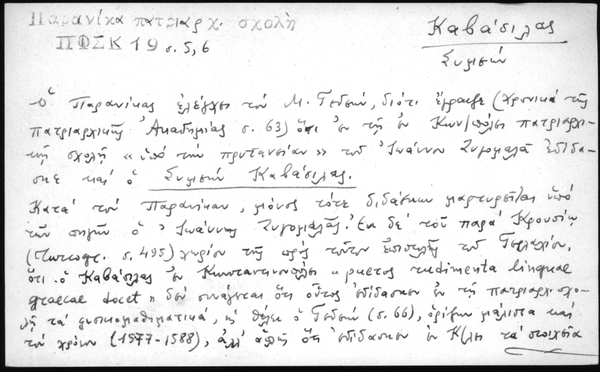 Παρανίκα πατριαρχ. σχολὴ
ΠΦΣΚ 19 σ. 5, 6
Καβάσιλας
Συμεών
Ὁ Παρανίκας ἐλέγχει τὸν Μ. Γεδεών, διότι ἔγραψε (Χρονικὰ τῆς
πατριαρχικῆς Ἀκαδημίας σ. 63) ὅτι ἐν τῇ ἐν Κων/πόλει πατριαρχι-
κῇ σχολῇ «ὑπὸ τὴν πρυτανείαν» τοῦ Ἰωάννου Ζυγομαλᾶ ἐδίδα-
σκε καὶ ὁ Συμεὼν Καβάσιλας.
Κατὰ τὸν Παρανίκαν, μόνος τότε διδάσκων μαρτυρεῖται ὑπὸ
τῶν πηγῶν ὁ Ἰωάννης Ζυγομαλᾶς. Ἐκ δὲ τοῦ παρὰ Κρουσίῳ
(Turcogr. σ. 495) χωρίου τῆς πρὸς τοῦτον ἐπιστολῆς τοῦ Γερλαχίου,
ὅτι ὁ Καβάσιλας ἐν Κωνσταντινουπόλει «pueros rudimenta linguae
graecae docet» δὲν συνάγεται ὅτι οὗτος ἐδίδασκεν ἐν τῇ πατριαρχ. σχο-
λῇ τὰ φυσικομαθηματικά, ὡς θέλει ὁ Γεδεών (σ. 66), ὁρίζων μάλιστα καὶ
τὸν χρόνον (1577-1588), ἀλλ' ἁπλῶς ὅτι ἐδίδασκεν ἐν Κ/λει τὰ στοιχεῖα